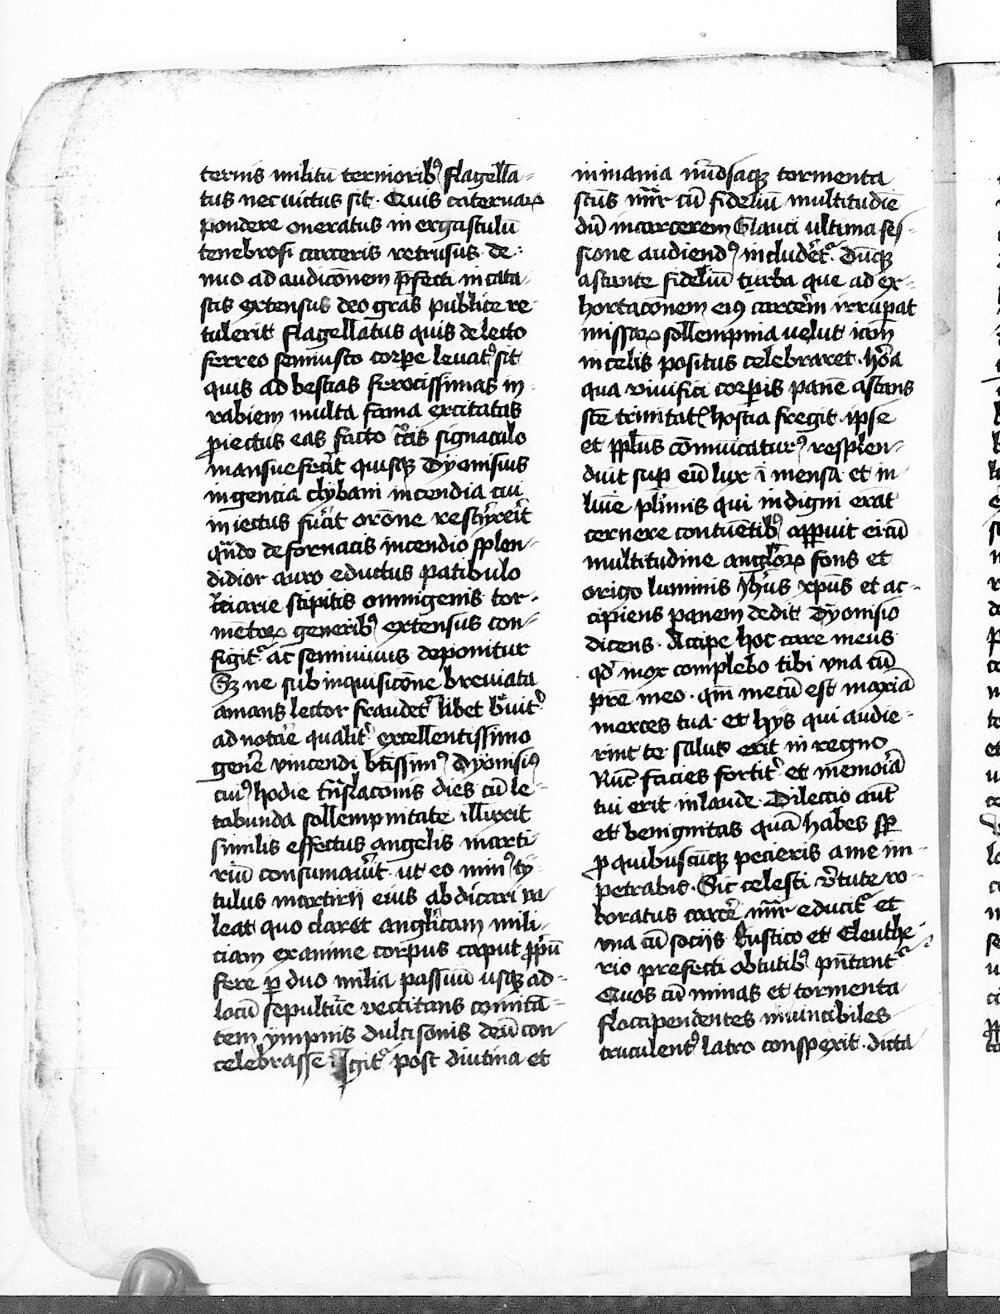 ternis militū ternioribꝫ flagella-
tus nec victus sit. Quis catenaꝝ
pondere oneratus in ergastulū
tenebrosi carceris retrusus de-
nuo ad audicōnem p̄fecti in cata-
stis extensus deo gras publice re
tulerit flagellatus quis de lecto
ferreo semiusto corpe levatꝰ sit
quis ad bestias ferocissimas in
rabiem multa fama excitatas
ꝓiectus eas facto crͨis signaculo
mansuefecit quisqꝫ Dyonisius
ingencia clybani incendia cui
iniectus fūit orōne restīxeit
qn̄do de fornacis incendio splen-
didior auro eductus patibulo
stipitis omnigenis tor-
mētoꝝ generibꝫ extensus con-
figitͬ ac semivivus deponitur
Sꝫ ne sub inquisicōne breviata
amans lector fraudetͬ libet bͬuitͬ
adnotare qualitͬ excellentissimo
gene̅ vincendi bt̄issimꝰ Dyonisiꝰ
cuiꝰ hodie tn̄slacōnis dies cū le-
tabunda sollempnitate illuxit
similis effectus angelis marti-
riū consumavit ut eo minꝰ ty-
tulus martirii eius abdicari va
leat quo claret anglicam mili-
ciam exanime corpus caput ꝓpū
fere ꝑ duo milia passuū usqꝫ ad
locū sepulture vectitans comita-
tem ympnis dulcisonis deū con-
celebrasse Igitͬ post diutina et
inmania nec̄dqꝫ tormenta
sc̄us mr̄ cū fidelium multitudīe
dū in carcerem Glauci ultima ses-
sione audiendꝰ includetͬ. Dūqꝫ
astante fideliū turba que ad ex-
hortacōnem eiꝰ carcēm irrupat
missaꝝ sollempnia velut iam
in celis positus celebraret. hora
qua vivifici corpis panē astans
sc̄e trinitatͥ hostia fregit. ipse
et pplus cōmūicaturꝰ resplen-
duit sup eū lux ī mensa et in
lumīe plīmis qui indigni erāt
cernere contuētibꝫ apparuit circū
multitudine angloꝝ fons et
origo luminis ihūs xpūs et ac-
cipiens panem dedit Dyonisio
dicens. Accipe hoc care meus
qd̄ mox complebo tibi una cū
pr̄e meo. qm̄ mecū est maxīa
merces tua. et hiis qui audie-
rint te salus erit in regno
Nūc facies fortitͬ et memoīa
tui erit in laude. Dilectio autē
et benignitas quā habes sp̄
ꝓ quibuscūqꝫ pecieris a me im-
petrabis. Sic celesti vͬtute ro-
boratus carcēe mr̄ educitͬ et
una cū sociis Rustico et Eleuthe-
rio prefecti obtutibꝫ pn̄tantͬ
Quos cū minas et tormenta
floccipendentes invincibiles
truculentꝰ latro conspexit. dicta